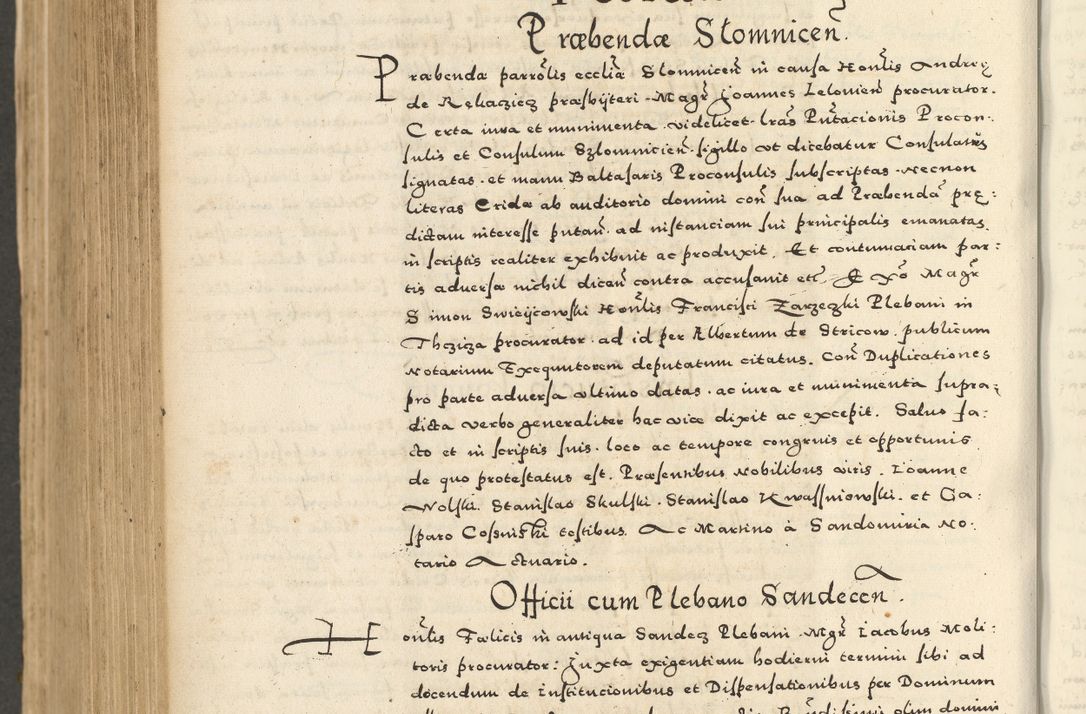 Præbendæ Slomnicen̄.
Præbendæ parrōlis eccliæ Slomnicen̄ in causa Honlis Andreę
de Rekaczicz præsbÿteri. Magr̄ Joannes Lelowien̄ procurator.
Certa iura et munimenta videlicet lras Putacionis Procon-
sulis et Consulum Szlomnicien̄. sigillo vt dicebatur Consulatus
signatas. et manu Baltasaris Proconsulis subscriptas. Necnon
literas Cridæ ab auditorio domini con̄ sua ad Præbendā prę:
dictam interesse putan̄. ad instanciam sui principalis emanatas.
in scriptis realiter exhibuit ac produxit. Et contumaciam par:
tis adversæ nichil dicen̄ contra accusauit etc̄. Ex xō Magr̄
Simon Swieÿcowski Honlis Francisci Zarzeczki Plebani in
Thcziza procurator. ad id per Albertum de Stricow. publicum
Notarium Exequutorem deputatum citatus. Con̄ Duplicationes
pro parte adversa vltimo datas. ac iura et munimenta supra:
dicta verbo generaliter hac vice dixit ac excepit. Saluo fa:
cto et in scriptis suis. loco ac tempore congruis et opportunis
de quo protestatus est. Præsentibus Nobilibus viris. Ioanne
Wolski. Stanislao Skulski. Stanislao Kwassniowski. et Ga:
sparo Cosninski testibus. Ac Martino à Sandomiria No:
tario Actuario.
Officii cum Plebano Sandecen̄.
Honlis Fælicis in antiqua Sandecz Plebani. Mgr̄ Iacobus Moli:
toris procurator: Juxta exigentiam hodierni termini sibi ad
docendum de Institucionibus et Dispensationibus per Dominum